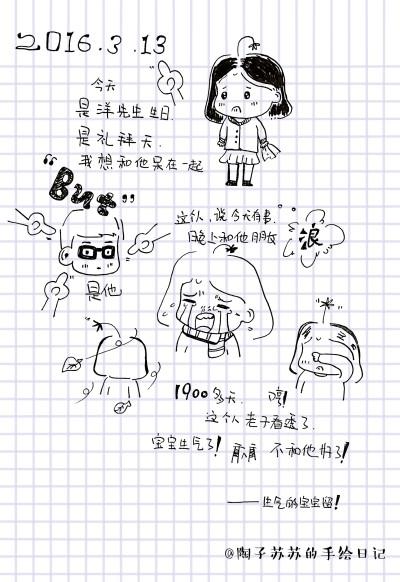 2016.3.13
今天
是洋先生生日.
是礼拜天.
我想和他呆在一起
"But"
这仏,说今天有事.
晚上和他朋友
浪
是他
1900多天. 哼!
这个仏老子看透了.
宝宝生气了! 嚯嚯 不和他好了!
——生气的宝宝留!
@陶子苏苏的手绘日记